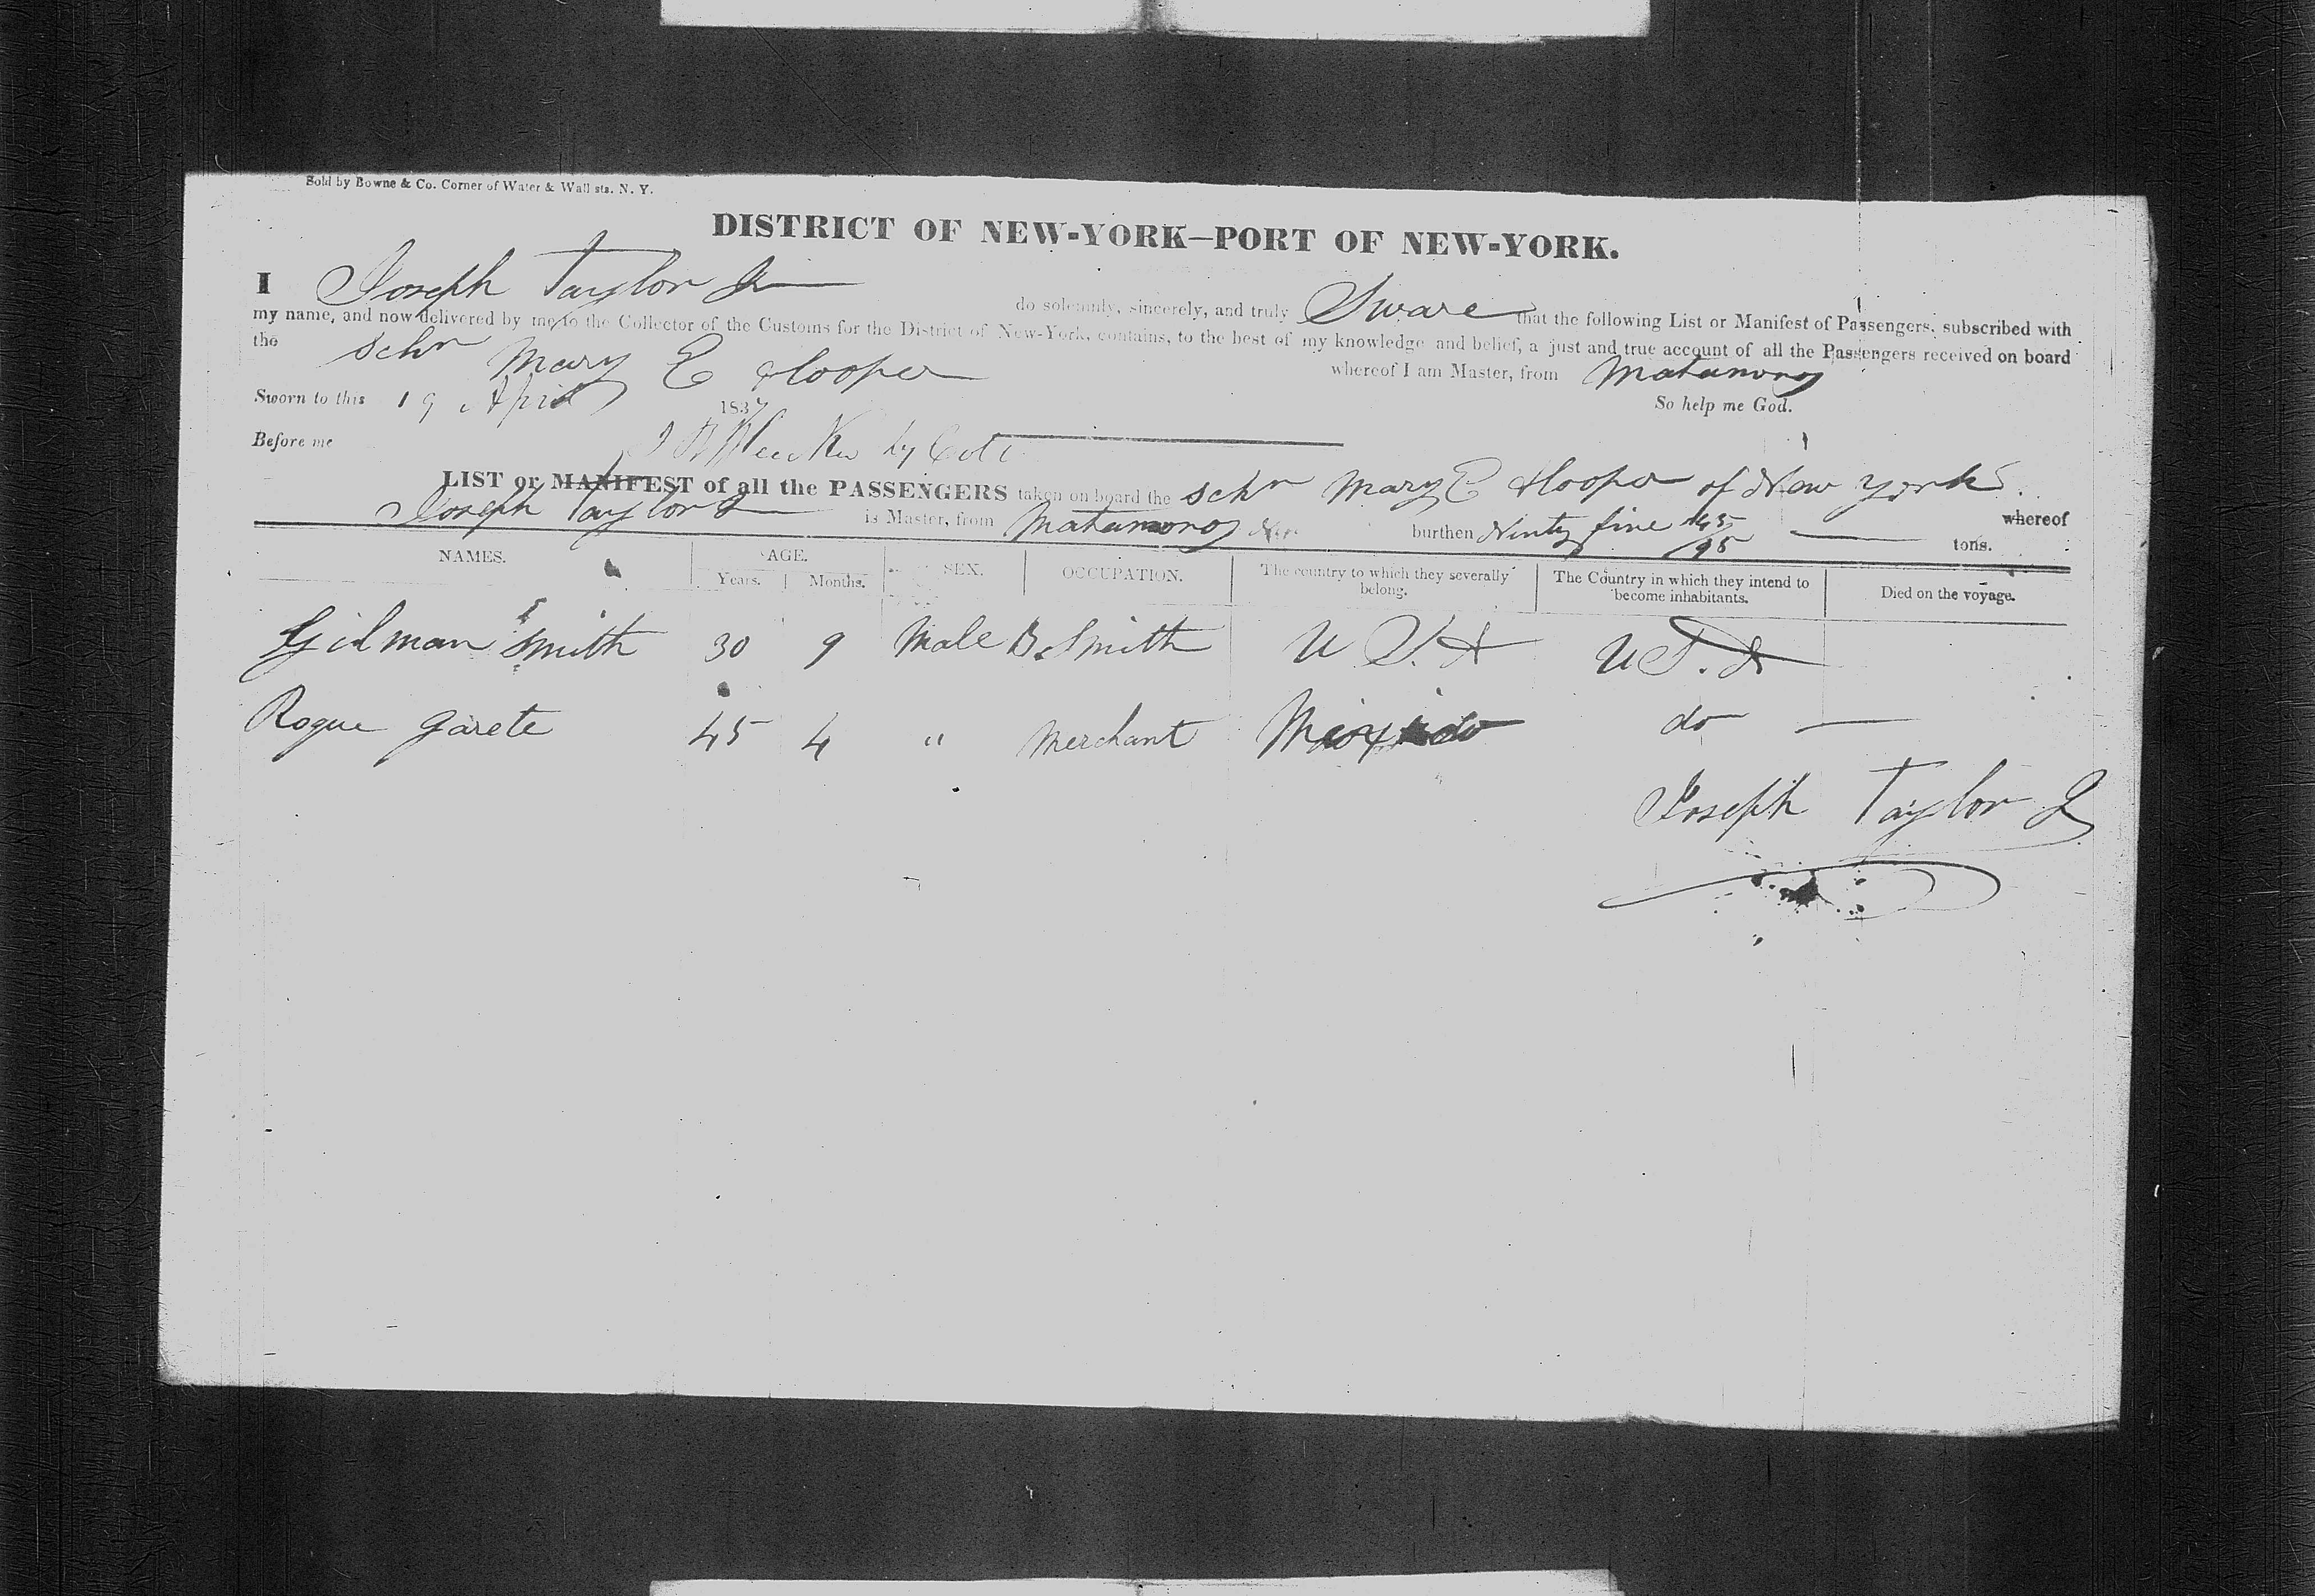 Sold by Bowne & Co. Corner of Water & Wall sts. N. Y.
DISTRICT OF NEW-YORK—PORT OF NEW-YORK.
I Joseph Taylor Jr do solemnly, sincerely, and truly Sware that the following List or Manifest of Passengers, subscribed with
my name, and now delivered by me to the Collector of the Customs for the District of New-York, contains, to the best of my knowledge and belief, a just and true account of all the Passengers received on board
the Schr Mary E Hooper whereof I am Master, from Matamoros
Sworn to this 19 April 1837 So help me God.
Before me
LIST or MANIFEST of all the PASSENGERS taken on board the Schr Mary E Hooper of New York whereof
Joseph Taylor J is Master, from Matamoros burthen Ninty five 45/95 tons.
NAMES. AGE. SEX. OCCUPATION. The country to which they severally belong. The Country in which they intend to become inhabitants. Died on the voyage.
Years. Months.
Gilman Smith 30 9 Male B. Smith U S. A U S. A
Rogue Garete 45 4 " Merchant Mexico do —
Joseph Taylor J